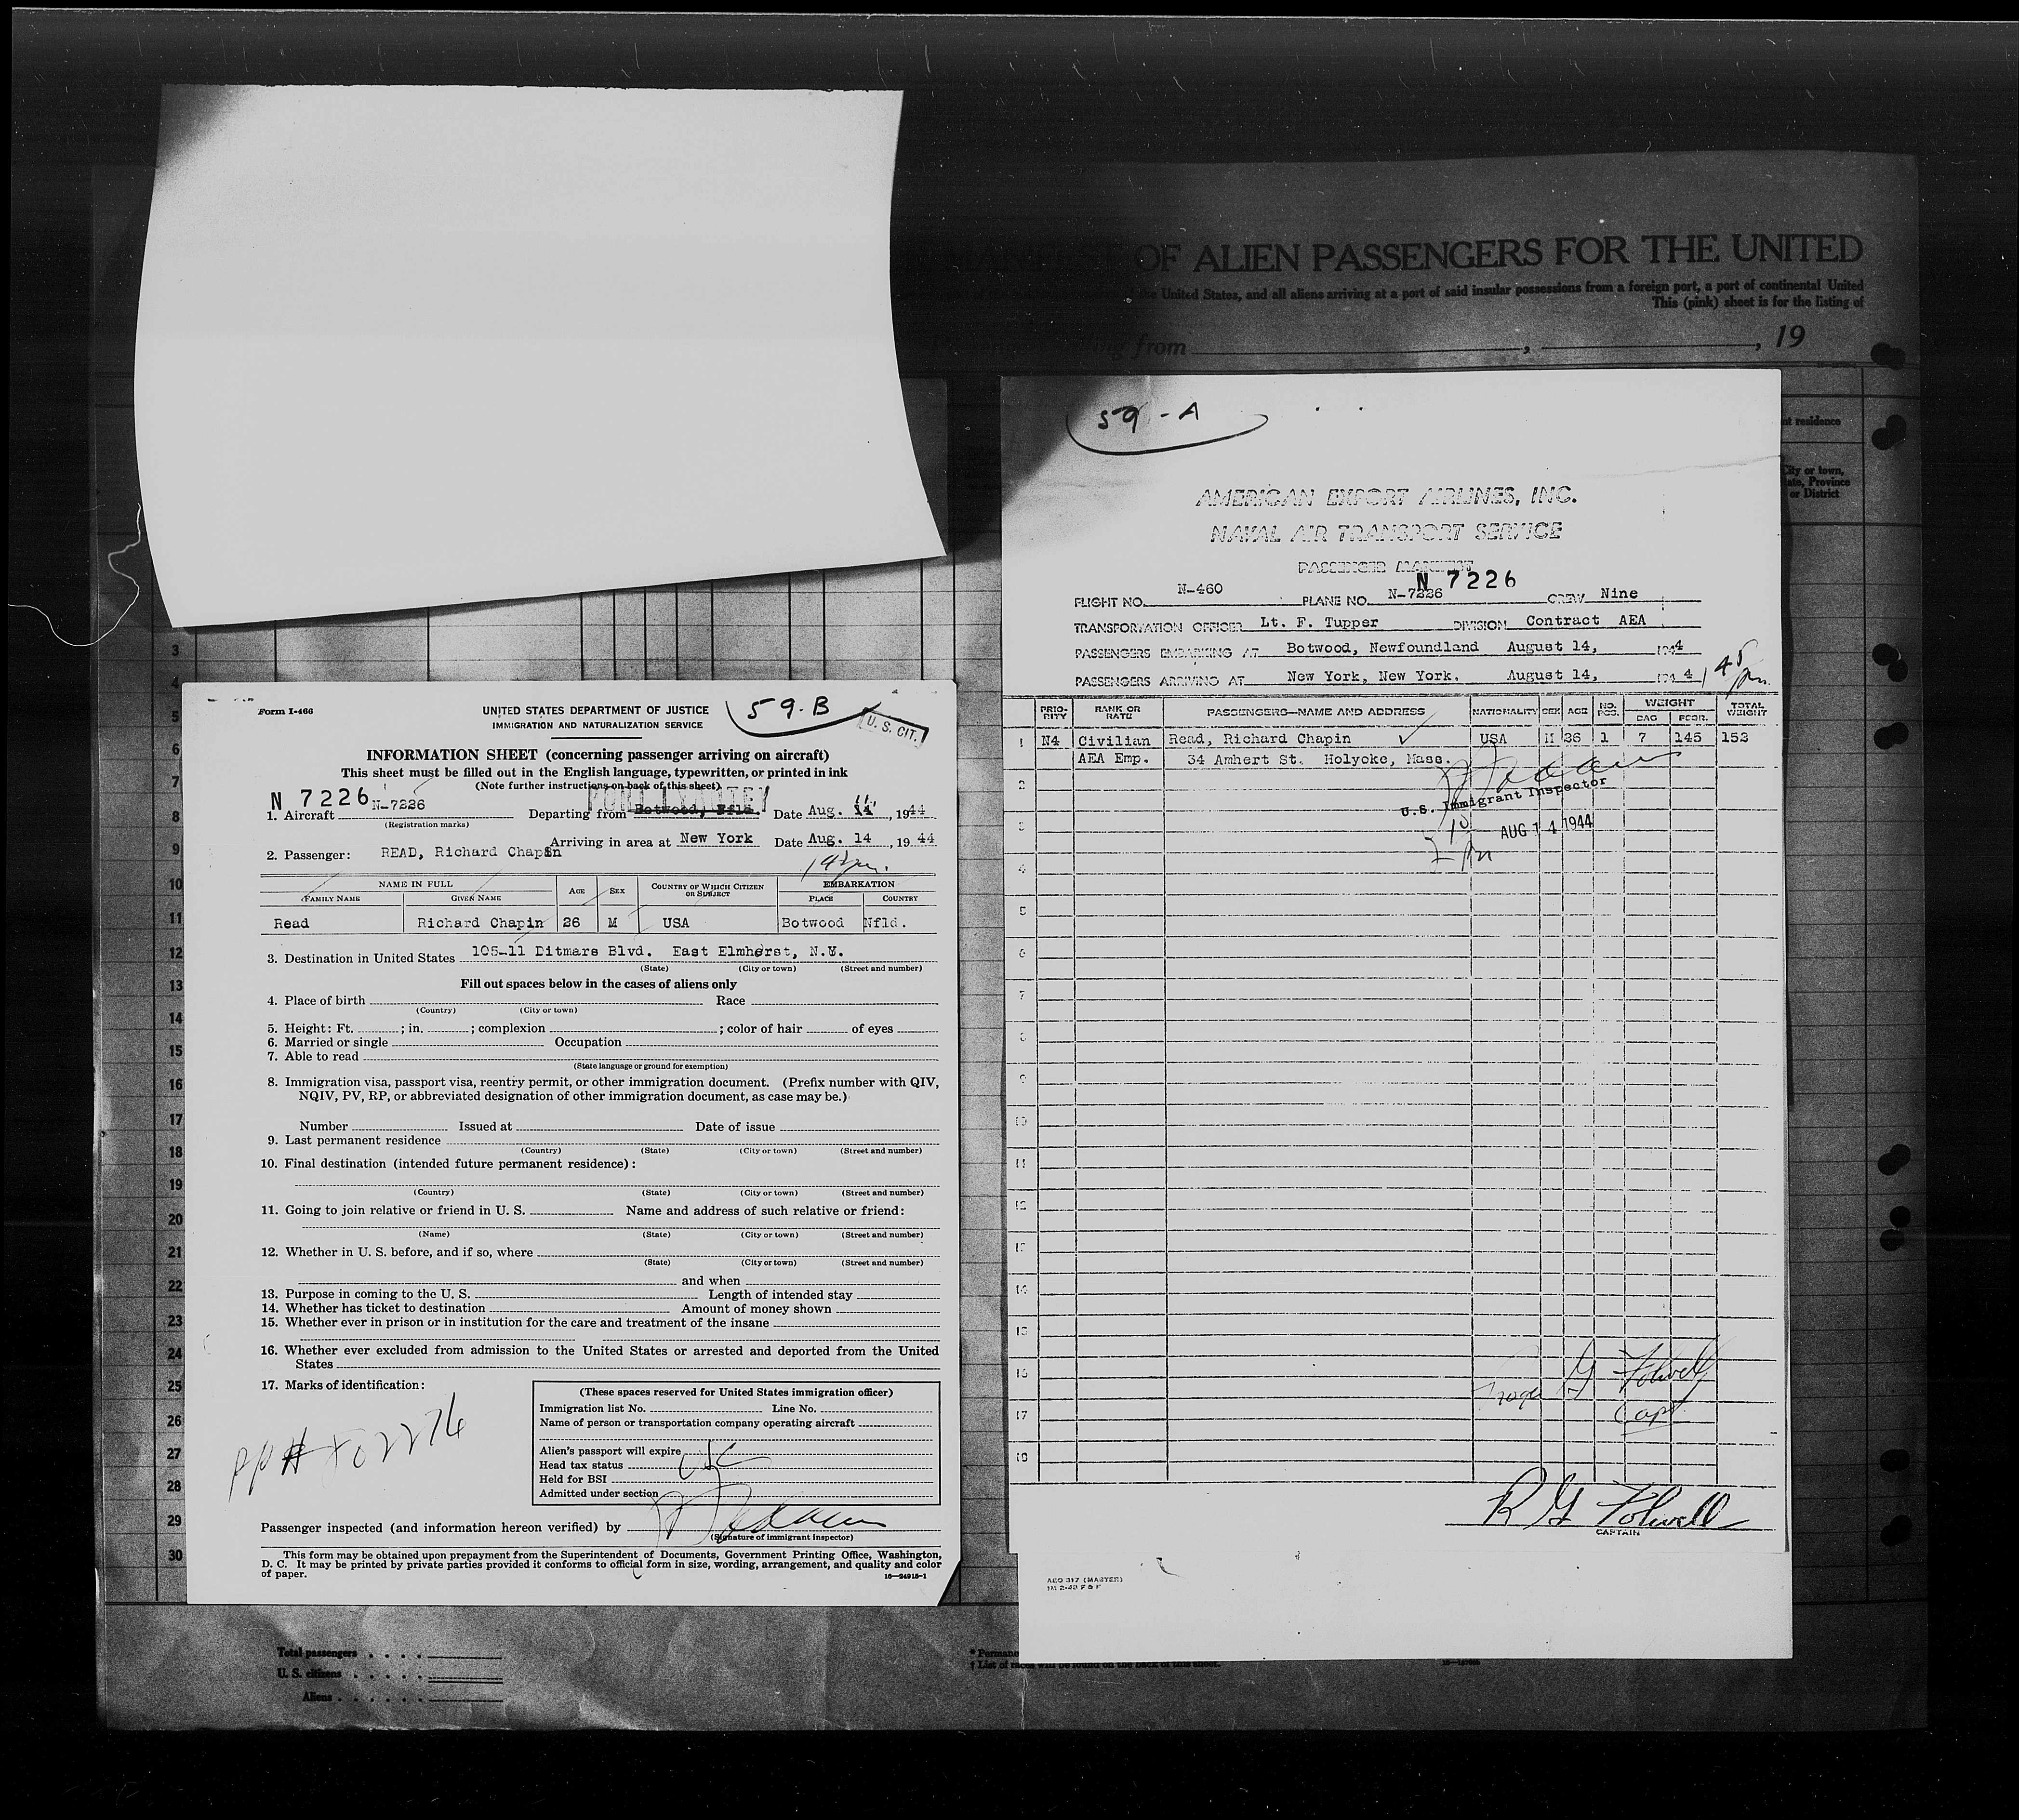 OF ALIEN PASSENGERS FOR THE UNITED
the United States, and all aliens arriving at a port of said insular possessions from a foreign port, a port of continental United
This (pink) sheet is for the listing of
from , , 19
nt residence
City or town,
ate, Province
or District
3
4
5
6
7
8
9
10
11
12
13
14
15
16
17
18
19
20
21
22
23
24
25
26
27
28
29
30
Form I-466
UNITED STATES DEPARTMENT OF JUSTICE
IMMIGRATION AND NATURALIZATION SERVICE
59-B
U. S. CIT.
INFORMATION SHEET (concerning passenger arriving on aircraft)
This sheet must be filled out in the English language, typewritten, or printed in ink
(Note further instructions on back of this sheet)
N 7226 N-7226
1. Aircraft Departing from Botwood, Nfld. Date Aug. 14, 1944
(Registration marks)
Arriving in area at New York Date Aug. 14, 1944
2. Passenger: READ, Richard Chapin
NAME IN FULL AGE SEX COUNTRY OF WHICH CITIZEN OR SUBJECT EMBARKATION
FAMILY NAME GIVEN NAME PLACE COUNTRY
Read Richard Chapin 26 M USA Botwood Nfld.
3. Destination in United States 105-11 Ditmars Blvd. East Elmherst, N.Y.
(State) (City or town) (Street and number)
Fill out spaces below in the cases of aliens only
4. Place of birth Race
(Country) (City or town)
5. Height: Ft. ; in. ; complexion ; color of hair of eyes
6. Married or single Occupation
7. Able to read
(State language or ground for exemption)
8. Immigration visa, passport visa, reentry permit, or other immigration document. (Prefix number with QIV,
NQIV, PV, RP, or abbreviated designation of other immigration document, as case may be.)
Number Issued at Date of issue
9. Last permanent residence
(Country) (State) (City or town) (Street and number)
10. Final destination (intended future permanent residence):
(Country) (State) (City or town) (Street and number)
11. Going to join relative or friend in U. S. Name and address of such relative or friend:
(Name) (State) (City or town) (Street and number)
12. Whether in U. S. before, and if so, where
(State) (City or town) (Street and number)
and when
13. Purpose in coming to the U. S. Length of intended stay
14. Whether has ticket to destination Amount of money shown
15. Whether ever in prison or in institution for the care and treatment of the insane
16. Whether ever excluded from admission to the United States or arrested and deported from the United
States
17. Marks of identification:
(These spaces reserved for United States immigration officer)
Immigration list No. Line No.
Name of person or transportation company operating aircraft
Alien's passport will expire
Head tax status
Held for BSI
Admitted under section
USC
PP#
Passenger inspected (and information hereon verified) by
(Signature of immigrant inspector)
This form may be obtained upon prepayment from the Superintendent of Documents, Government Printing Office, Washington,
D. C. It may be printed by private parties provided it conforms to official form in size, wording, arrangement, and quality and color
of paper.
16—24915-1
Total passengers
U. S. citizens
Aliens
59-A
AMERICAN EXPORT AIRLINES, INC.
NAVAL AIR TRANSPORT SERVICE
PASSENGER MANIFEST
N 7226
FLIGHT NO. N-460 PLANE NO. N-7226 CREW Nine
TRANSPORTATION OFFICER Lt. F. Tupper DIVISION Contract AEA
PASSENGERS EMBARKING AT Botwood, Newfoundland August 14, 1944
PASSENGERS ARRIVING AT New York, New York. August 14, 1944 145 pm.
PRIORITY RANK OR RATE PASSENGERS—NAME AND ADDRESS NATIONALITY SEX AGE NO. PCS. WEIGHT TOTAL WEIGHT
BAG PSGR.
1 N4 Civilian Read, Richard Chapin USA M 26 1 7 145 152
AEA Emp. 34 Amhert St. Holyoke, Mass.
U.S. Immigrant Inspector
AUG 14 1944
2
3
4
5
6
7
8
9
10
11
12
13
14
15
16
17
18
G Folwell
Capt
R G Folwell
CAPTAIN
AEO 317 (MASTER)
* Permane
† List of races will be found on the back of this sheet.